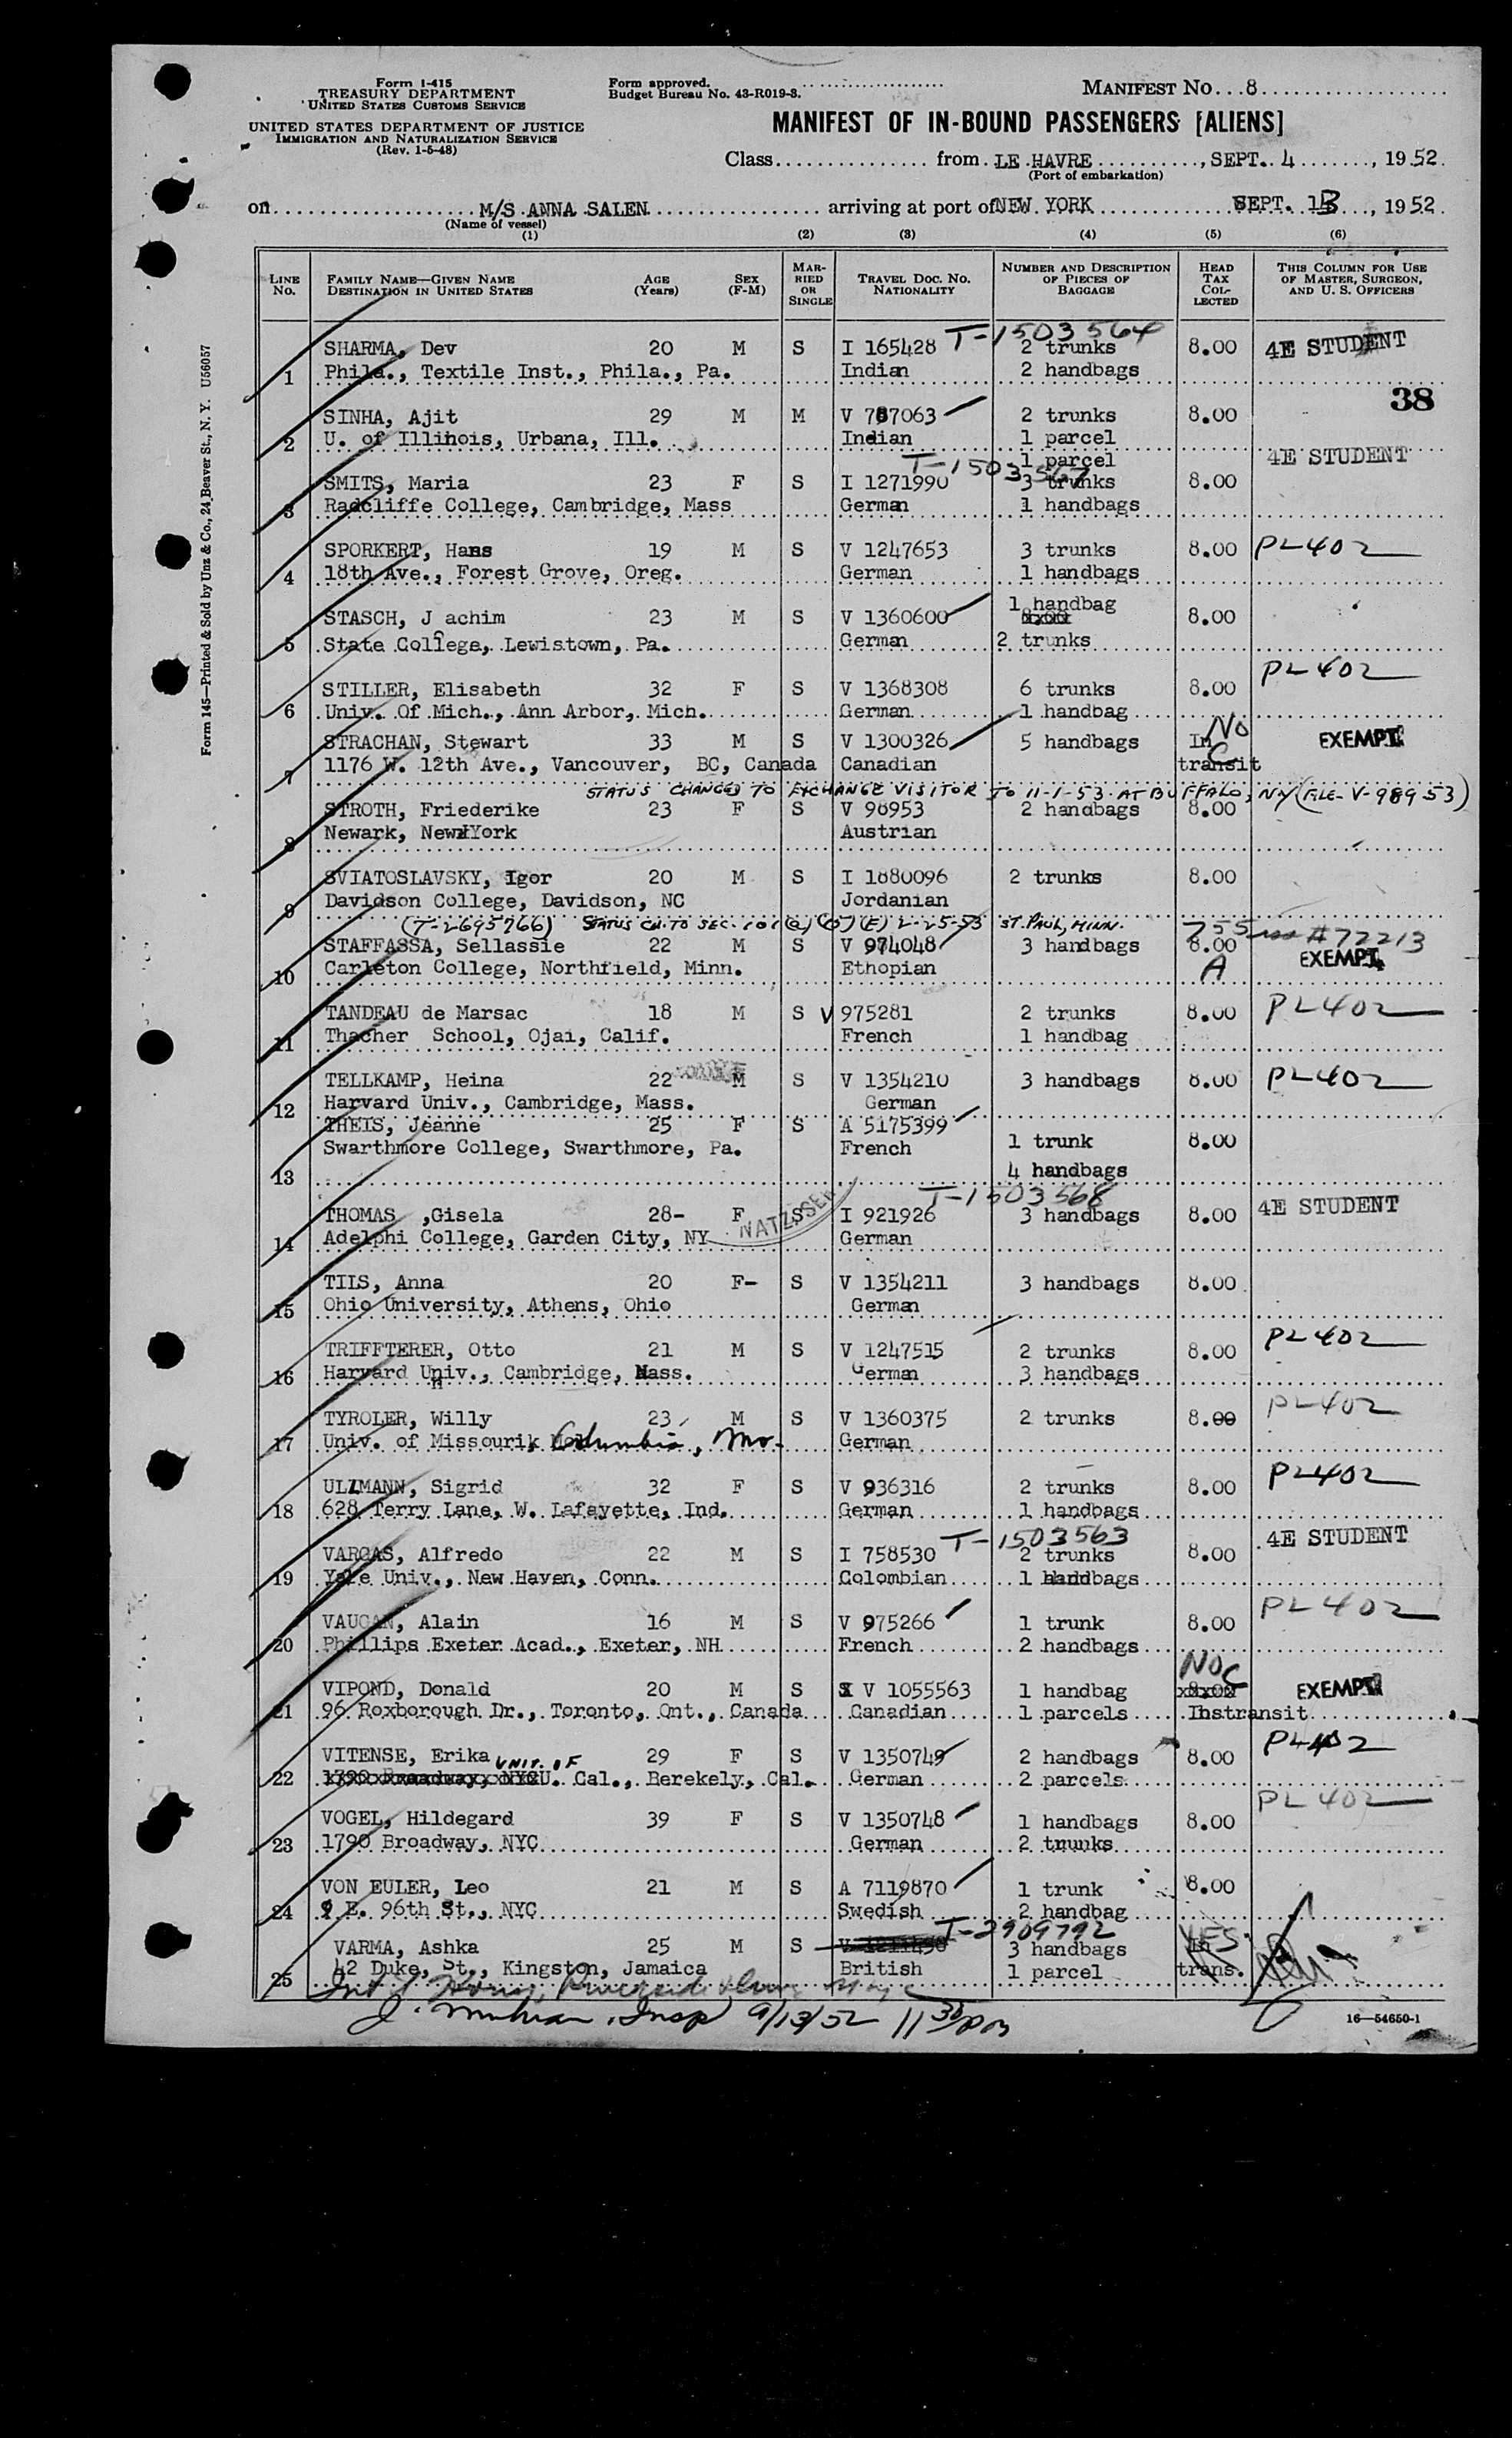 Form I-415
TREASURY DEPARTMENT
UNITED STATES CUSTOMS SERVICE
UNITED STATES DEPARTMENT OF JUSTICE
IMMIGRATION AND NATURALIZATION SERVICE
(Rev. 1-5-48)
Form approved.
Budget Bureau No. 43-R019-3.
MANIFEST NO. 8
MANIFEST OF IN-BOUND PASSENGERS [ALIENS]
Class from LE HAVRE, SEPT. 4, 1952
(Port of embarkation)
on M/S ANNA SALEN arriving at port of NEW YORK SEPT. 13, 1952
(Name of vessel)
(1) (2) (3) (4) (5) (6)
LINE No. FAMILY NAME—GIVEN NAME DESTINATION IN UNITED STATES AGE (Years) SEX (F-M) MARRIED OR SINGLE TRAVEL DOC. NO. NATIONALITY NUMBER AND DESCRIPTION OF PIECES OF BAGGAGE HEAD TAX COLLECTED THIS COLUMN FOR USE OF MASTER, SURGEON, AND U. S. OFFICERS
T-1503564
SHARMA, Dev 20 M S I 165428 2 trunks 8.00 4E STUDENT
1 Phila., Textile Inst., Phila., Pa. Indian 2 handbags
38
SINHA, Ajit 29 M M V 787063 2 trunks 8.00
2 U. of Illihois, Urbana, Ill. Indian 1 parcel
1 parcel 4E STUDENT
T-1503567
SMITS, Maria 23 F S I 1271990 3 trunks 8.00
3 Radcliffe College, Cambridge, Mass German 1 handbags
SPORKERT, Hans 19 M S V 1247653 3 trunks 8.00 PL402
4 18th Ave., Forest Grove, Oreg. German 1 handbags
1 handbag
STASCH, J achim 23 M S V 1360600 8.00
5 State College, Lewistown, Pa. German 2 trunks
PL402
STILLER, Elisabeth 32 F S V 1368308 6 trunks 8.00
6 Univ. Of Mich., Ann Arbor, Mich. German 1 handbag
No C
STRACHAN, Stewart 33 M S V 1300326 5 handbags In EXEMPT
7 1176 W. 12th Ave., Vancouver, BC, Canada Canadian transit
STATUS CHANGED TO EXCHANGE VISITOR TO 11-1-53 AT BUFFALO, NY (FILE-V-98953)
STROTH, Friederike 23 F S V 98953 2 handbags 8.00
8 Newark, NewxYork Austrian
SVIATOSLAVSKY, Igor 20 M S I 1880096 2 trunks 8.00
9 Davidson College, Davidson, NC Jordanian
(T-2695766) STATUS CH. TO SEC. 101(a)(15)(E) 2-25-53 ST. PAUL, MINN. #72213
STAFFASSA, Sellassie 22 M S V 974048 3 handbags 8.00
10 Carleton College, Northfield, Minn. Ethopian A EXEMPT
TANDEAU de Marsac 18 M S V 975281 2 trunks 8.00 PL402
11 Thacher School, Ojai, Calif. French 1 handbag
TELLKAMP, Heina 22 M S V 1354210 3 handbags 8.00 PL402
12 Harvard Univ., Cambridge, Mass. German
THEIS, Jeanne 25 F S A 5175399
Swarthmore College, Swarthmore, Pa. French 1 trunk 8.00
13 4 handbags
T-1503568
THOMAS ,Gisela 28- F S I 921926 3 handbags 8.00 4E STUDENT
14 Adelphi College, Garden City, NY German
TIIS, Anna 20 F- S V 1354211 3 handbags 8.00
15 Ohio University, Athens, Ohio German
TRIFFTERER, Otto 21 M S V 1247515 2 trunks 8.00 PL402
16 Harvard Univ., Cambridge, Mass. German 3 handbags
TYROLER, Willy 23 M S V 1360375 2 trunks 8.00 PL402
17 Univ. of Missourik Columbia, Mo. German
ULLMANN, Sigrid 32 F S V 936316 2 trunks 8.00 PL402
18 628 Terry Lane, W. Lafayette, Ind. German 1 handbags
T-1503563
VARGAS, Alfredo 22 M S I 758530 2 trunks 8.00 4E STUDENT
19 Yale Univ., New Haven, Conn. Colombian 1 handbags
VAUCAN, Alain 16 M S V 975266 1 trunk 8.00 PL402
20 Phillips Exeter Acad., Exeter, NH French 2 handbags
No C
VIPOND, Donald 20 M S V 1055563 1 handbag EXEMPT
21 96 Roxborough Dr., Toronto, Ont., Canada Canadian 1 parcels Instransit
VITENSE, Erika 29 F S V 1350749 2 handbags 8.00 PL402
UNIV. OF
22 1790 Broadway, NYC U. Cal., Berekely, Cal. German 2 parcels
VOGEL, Hildegard 39 F S V 1350748 1 handbags 8.00 PL402
23 1790 Broadway, NYC German 2 trunks
VON EULER, Leo 21 M S A 7119870 1 trunk 8.00
24 9 E. 96th St., NYC Swedish 2 handbag
T-2909792
VARMA, Ashka 25 M S 3 handbags In YES
25 42 Duke, St., Kingston, Jamaica British 1 parcel trans.
Insp 9/13/52 11 30 pm
16—54650-1
Form 145—Printed & Sold by Unz & Co., 24 Beaver St., N. Y. U56057